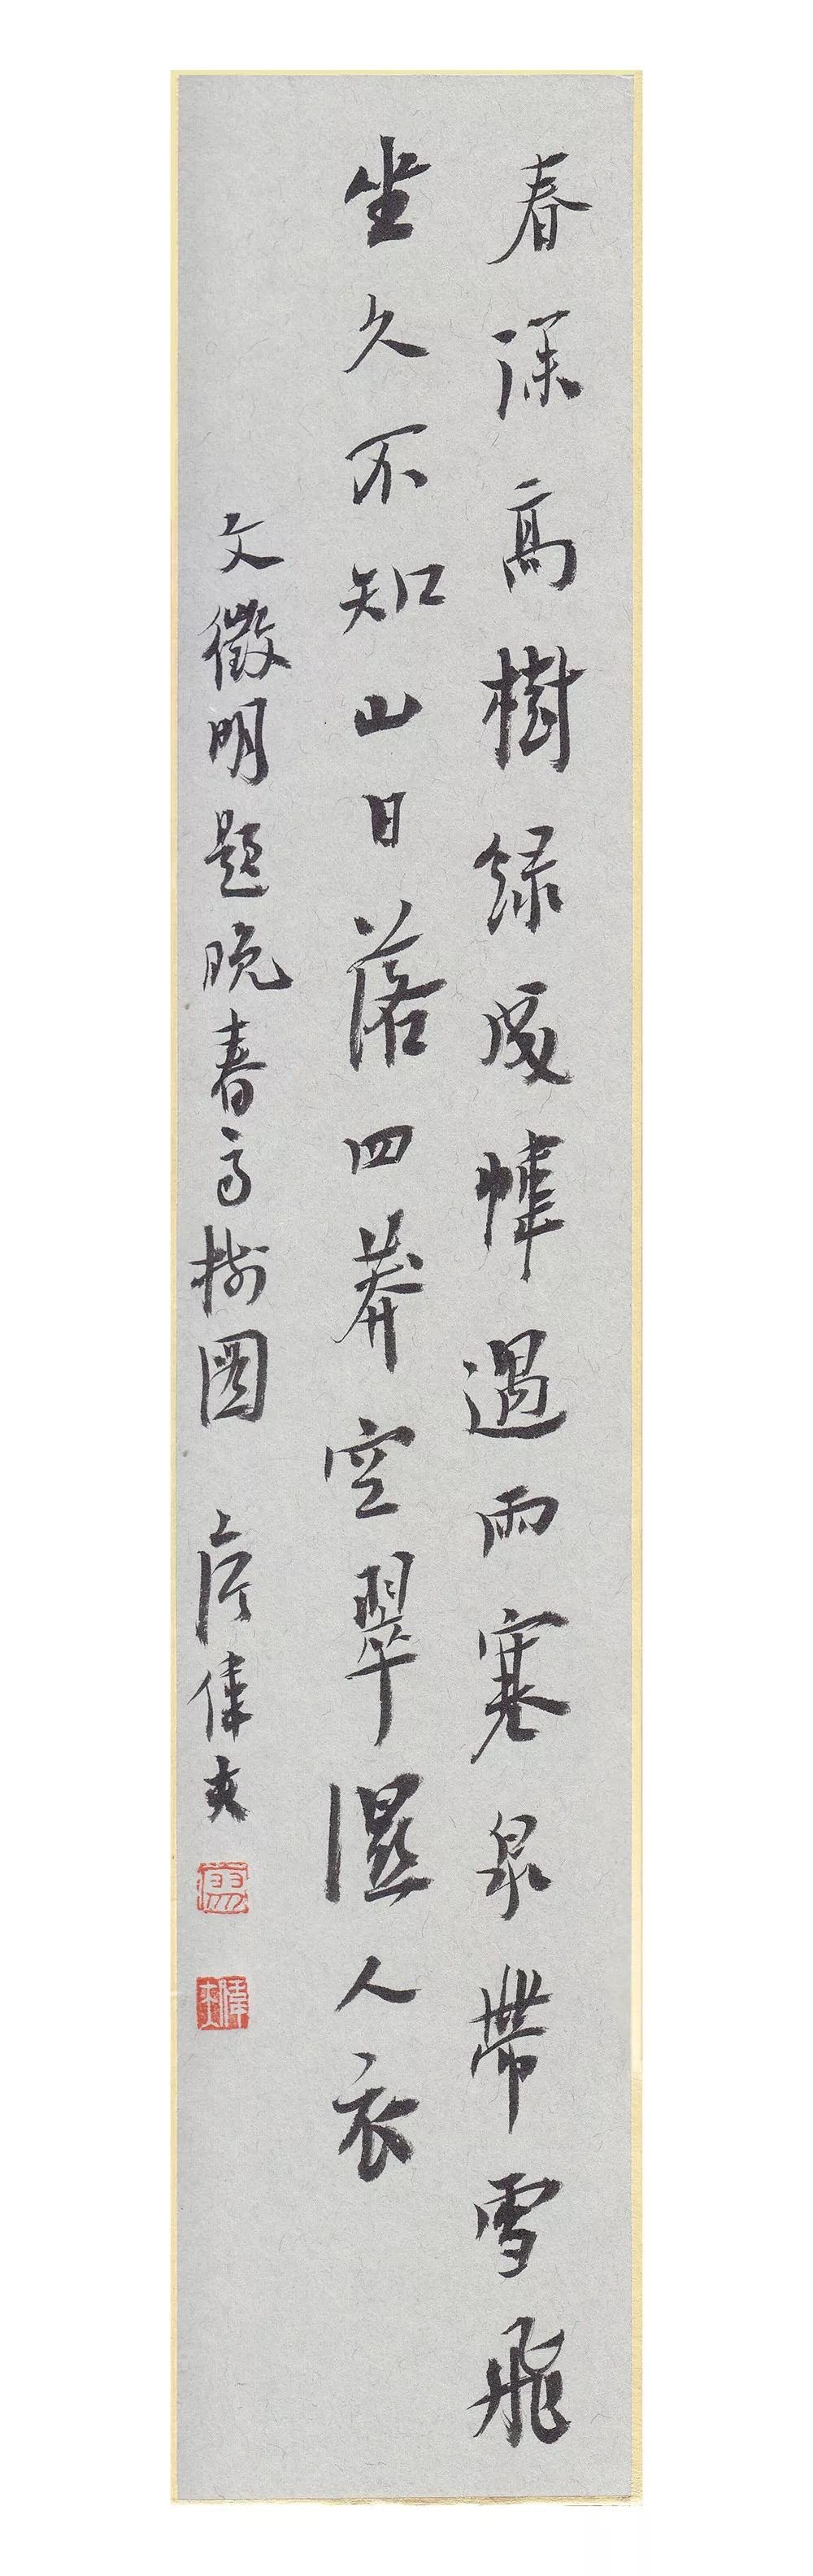 春深高樹緑成幃過雨寒泉帶雪飛
坐久不知山日落四莽空翠濕人衣
文徵明題晚春高樹圖 偉夫